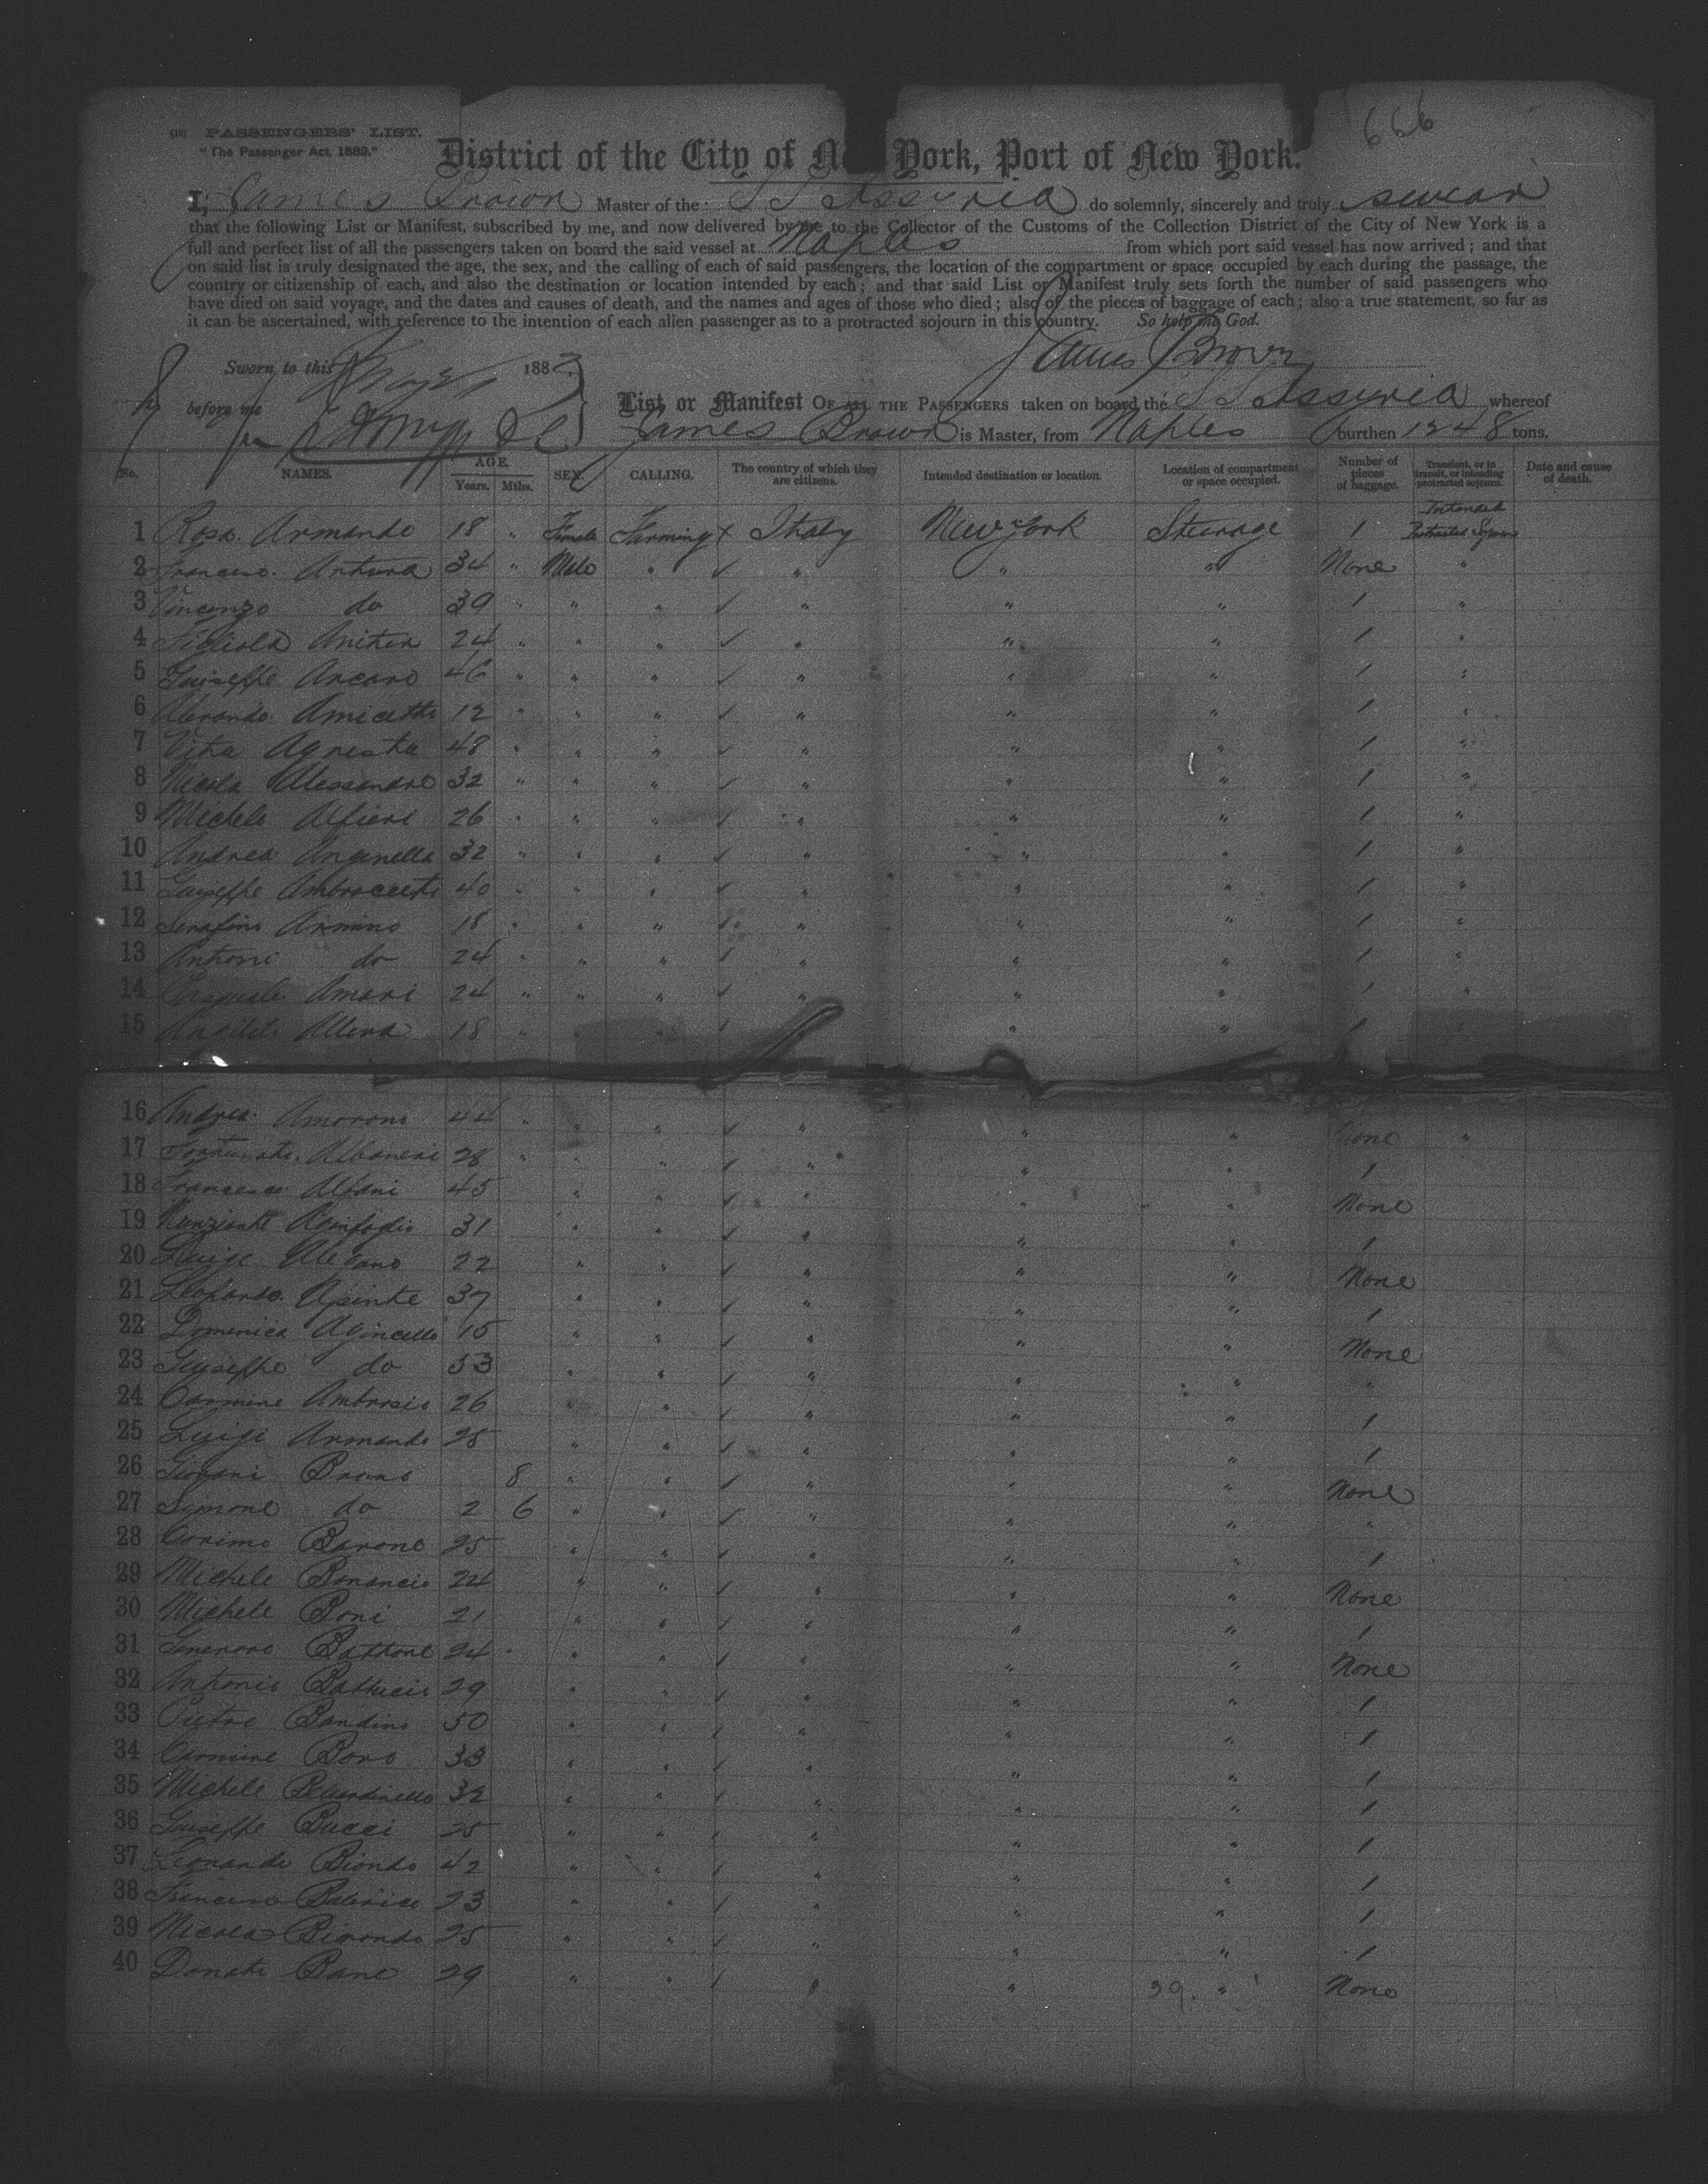 666
(18) PASSENGERS' LIST.
"The Passenger Act, 1882."
District of the City of New York, Port of New York.
I, James Brown Master of the SS Assyria do solemnly, sincerely and truly swear
that the following List or Manifest, subscribed by me, and now delivered by me to the Collector of the Customs of the Collection District of the City of New York is a
full and perfect list of all the passengers taken on board the said vessel at Naples from which port said vessel has now arrived; and that
on said list is truly designated the age, the sex, and the calling of each of said passengers, the location of the compartment or space occupied by each during the passage, the
country or citizenship of each, and also the destination or location intended by each; and that said List or Manifest truly sets forth the number of said passengers who
have died on said voyage, and the dates and causes of death, and the names and ages of those who died; also of the pieces of baggage of each; also a true statement, so far as
it can be ascertained, with reference to the intention of each alien passenger as to a protracted sojourn in this country. So help me God.
James Brown
Sworn to this 188
before me
List or Manifest OF ALL THE PASSENGERS taken on board the SS Assyria whereof
James Brown is Master, from Naples burthen 1248 tons.
No. NAMES. AGE. Years. Mths. SEX. CALLING. The country of which they are citizens. Intended destination or location. Location of compartment or space occupied. Number of pieces of baggage. Transient, or in transit, or intending protracted sojourn. Date and cause of death.
1 Rosa Armando 18 " Female Farming x Italy New York Steerage 1 Intended Protracted Sojourn
2 Francesco Artura 34 " Male " ✓ " " " None "
3 Vincenzo do 39 " " " ✓ " " " 1 "
4 Anitra 24 " " " ✓ " " " 1 "
5 Guiseppe Arcaro 46 " " " ✓ " " " 1 "
6 Amicetti 12 " " " ✓ " " " 1 "
7 Vita Agresta 48 " " " ✓ " " " 1 "
8 Nicola Alessandro 32 " " " ✓ " " " 1 "
9 Michele Alfieri 26 " " " ✓ " " " 1 "
10 Andrea Anganella 32 " " " ✓ " " " 1 "
11 Guiseppe 40 " " " ✓ " " " 1 "
12 Serafino Armino 18 " " " ✓ " " " 1 "
13 Antoni do 24 " " " ✓ " " " 1 "
14 Amari 24 " " " ✓ " " " 1 "
15 Alleva 18 " ✓ " " 1 "
16 Andrea Amorono 44 " " " ✓ " " " None "
17 Fortunato Albaneri 28 " " " ✓ " " " 1
18 Francesco Albani 45 " " ✓ " " " None
19 31 " " ✓ " " " 1
20 Luigi 22 " " ✓ " " " None
21 Leonardo 37 " " ✓ " " " 1
22 Domenica 15 " " ✓ " " " None
23 Guiseppe do 53 " " ✓ " " " "
24 Carmine Ambrosio 26 " ✓ " " " 1
25 Luigi Armando 28 " " ✓ " " " 1
26 Giovani Bruno 8 " " ✓ " " " None
27 Simone do 2 6 " " ✓ " " " "
28 Barone 25 " " ✓ " " " 1
29 Michele Bonancio 24 " " ✓ " " " None
30 Michele Boni 21 " " ✓ " " " 1
31 Battone 24 " " ✓ " " " None
32 Antonio 29 " " ✓ " " " 1
33 Pietro Bandino 50 " " ✓ " " " 1
34 Carmine Bono 33 " " ✓ " " " 1
35 Michele 32 " " ✓ " " " 1
36 Guiseppe Bucci 25 " " ✓ " " " 1
37 Leonardo Biondo 42 " " ✓ " " " 1
38 Francesco 23 " " ✓ " " " 1
39 Nicola 25 " " ✓ " " " 1
40 Donato Bane 29 " " ✓ " " 39. " None